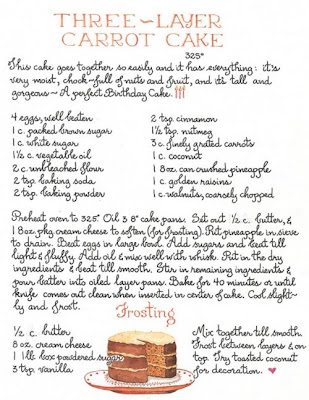 THREE~LAYER
CARROT CAKE
325°
This cake goes together so easily and it has everything: it's
very moist, chock-full of nuts and fruit, and it's tall and
gorgeous ~ A perfect Birthday Cake
4 eggs, well beaten
1 c. packed brown sugar
1 c. white sugar
1½ c. vegetable oil
2 c. unbleached flour
2 tsp. baking soda
2 tsp. baking powder
2 tsp. cinnamon
1½ tsp. nutmeg
3 c. finely grated carrots
1 c. coconut
1 8oz. can crushed pineapple
1 c. golden raisins
1 c. walnuts, coarsely chopped
Preheat oven to 325° Oil 3 8" cake pans. Set out ½ c. butter, &
1 8oz. pkg cream cheese to soften (for frosting). Put pineapple in sieve
to drain. Beat eggs in large bowl. Add sugars and beat till
light & fluffy. Add oil & mix well with whisk. Put in the dry
ingredients & beat till smooth. Stir in remaining ingredients &
pour batter into oiled layer pans. Bake for 40 minutes or until
knife comes out clean when inserted in center of cake. Cool slight-
ly and frost.
Frosting
½ c. butter
8 oz. cream cheese
1 1lb. box powdered sugar
3 tsp. vanilla
Mix together till smooth.
Frost between layers & on
top. Try toasted coconut
for decoration. ♥